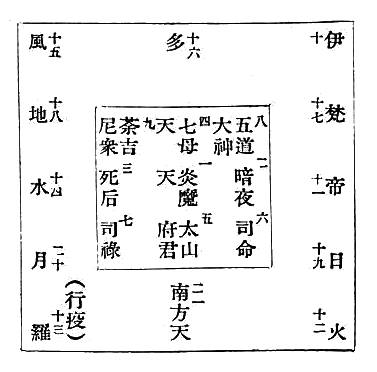 伊十
梵十七
帝十一
日十九
火十二
多十六
五道八
大神
暗夜二
司命六
七母四
天
炎魔一
天
太山五
府君
荼吉九
尼衆
死后三
司祿七
南方天二一
風十五
地十八
水十四
月二十
羅十三
（行疫）